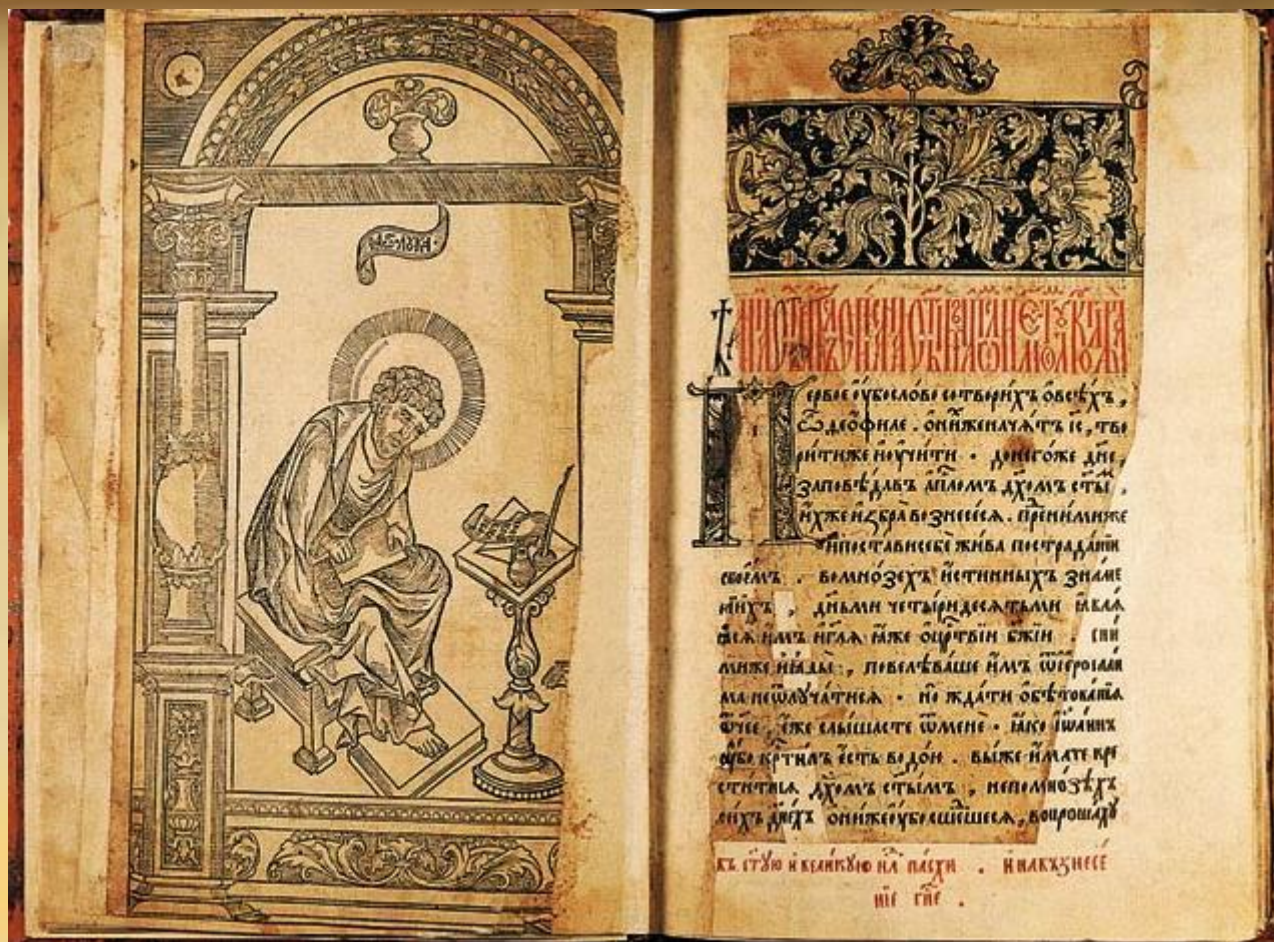 Первое ѹ҆бо сло́во сотвори́хъ ѻ҆ всѣ́хъ,
Ѽ деѻ҆́филе. ѻ҆ ни́хже начѧ́тъ і҆с, тво
ри́тиже и҆ ѹ҆чи́ти. до него́же дн҃е,
заповѣ́давъ а҆пⷭ҇ломъ дх҃омъ ст҃ы́ⷨ,
и҆́хже и҆збра̀ вознесе́сѧ. пре́ ни́миже
и҆ поста́ви себѐ жи́ва по страда́нїи
свое́мъ. во мно́зехъ и҆́стинныхъ зна́ме
нїихъ, дньми четы́ридесѧтьми ꙗ҆влѧ́
ѧсѧ и҆̀мъ и҆ гл҃ѧ ꙗ҆́же ѻ҆ црⷭ҇твїи бж҃їи. с ни́
миже и҆ ꙗ҆ды̀, повелѣва́ше и҆̀мъ ѿ і҆ерⷭ҇оли
ма не ѿлꙋча́тисѧ. но жда́ти ѻ҆бѣтова́нїѧ
ѻ҆́ч҃ее, є҆́же слы́шасте ѿ менѐ. ꙗ҆́ко і҆ѡ҆а́ннъ
ѹ҆́бо крⷭ҇ти́лъ є҆́сть водо́ю. вы́же и҆́мате кре
сти́тисѧ дх҃омъ ст҃ы́мъ, не по мно́зѣхъ
си́хъ дне́хъ ѻ҆ни́же ѹ҆̀бо сше́дшесѧ, вопроша́хꙋ
въ ст҃ꙋю и҆ вели́кꙋю нⷣлю па́схи. и҆ на възнесе́
нїе гн҃е.